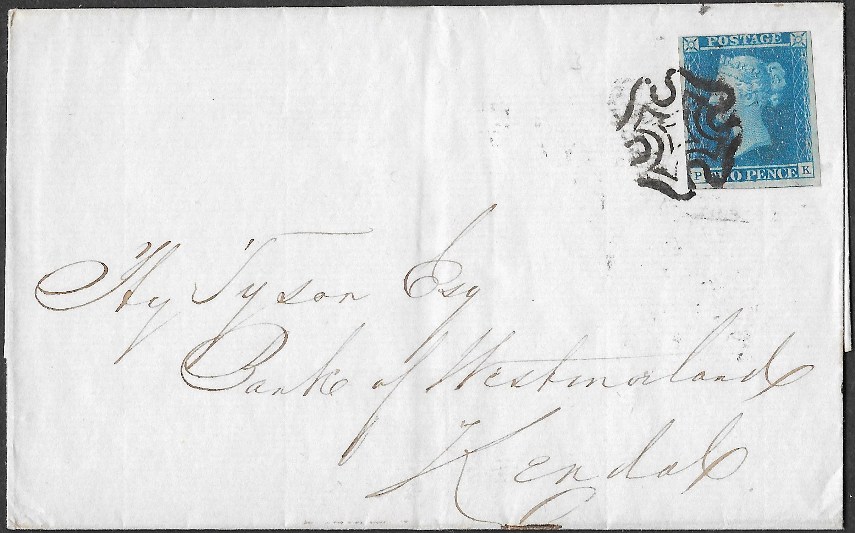 POSTAGE
TWO PENCE
P K
Hy Tyson Esq
Bank of Westmorland
Kendal